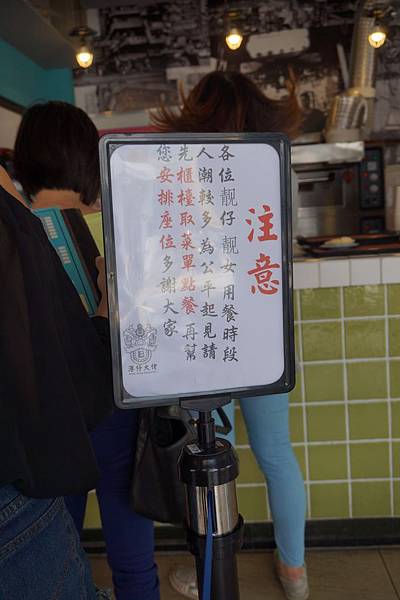 注意
各位靚仔靚女用餐時段
人潮較多為公平起見請
先櫃檯取菜單點餐再幫
您安排座位多謝大家
港仔大佬